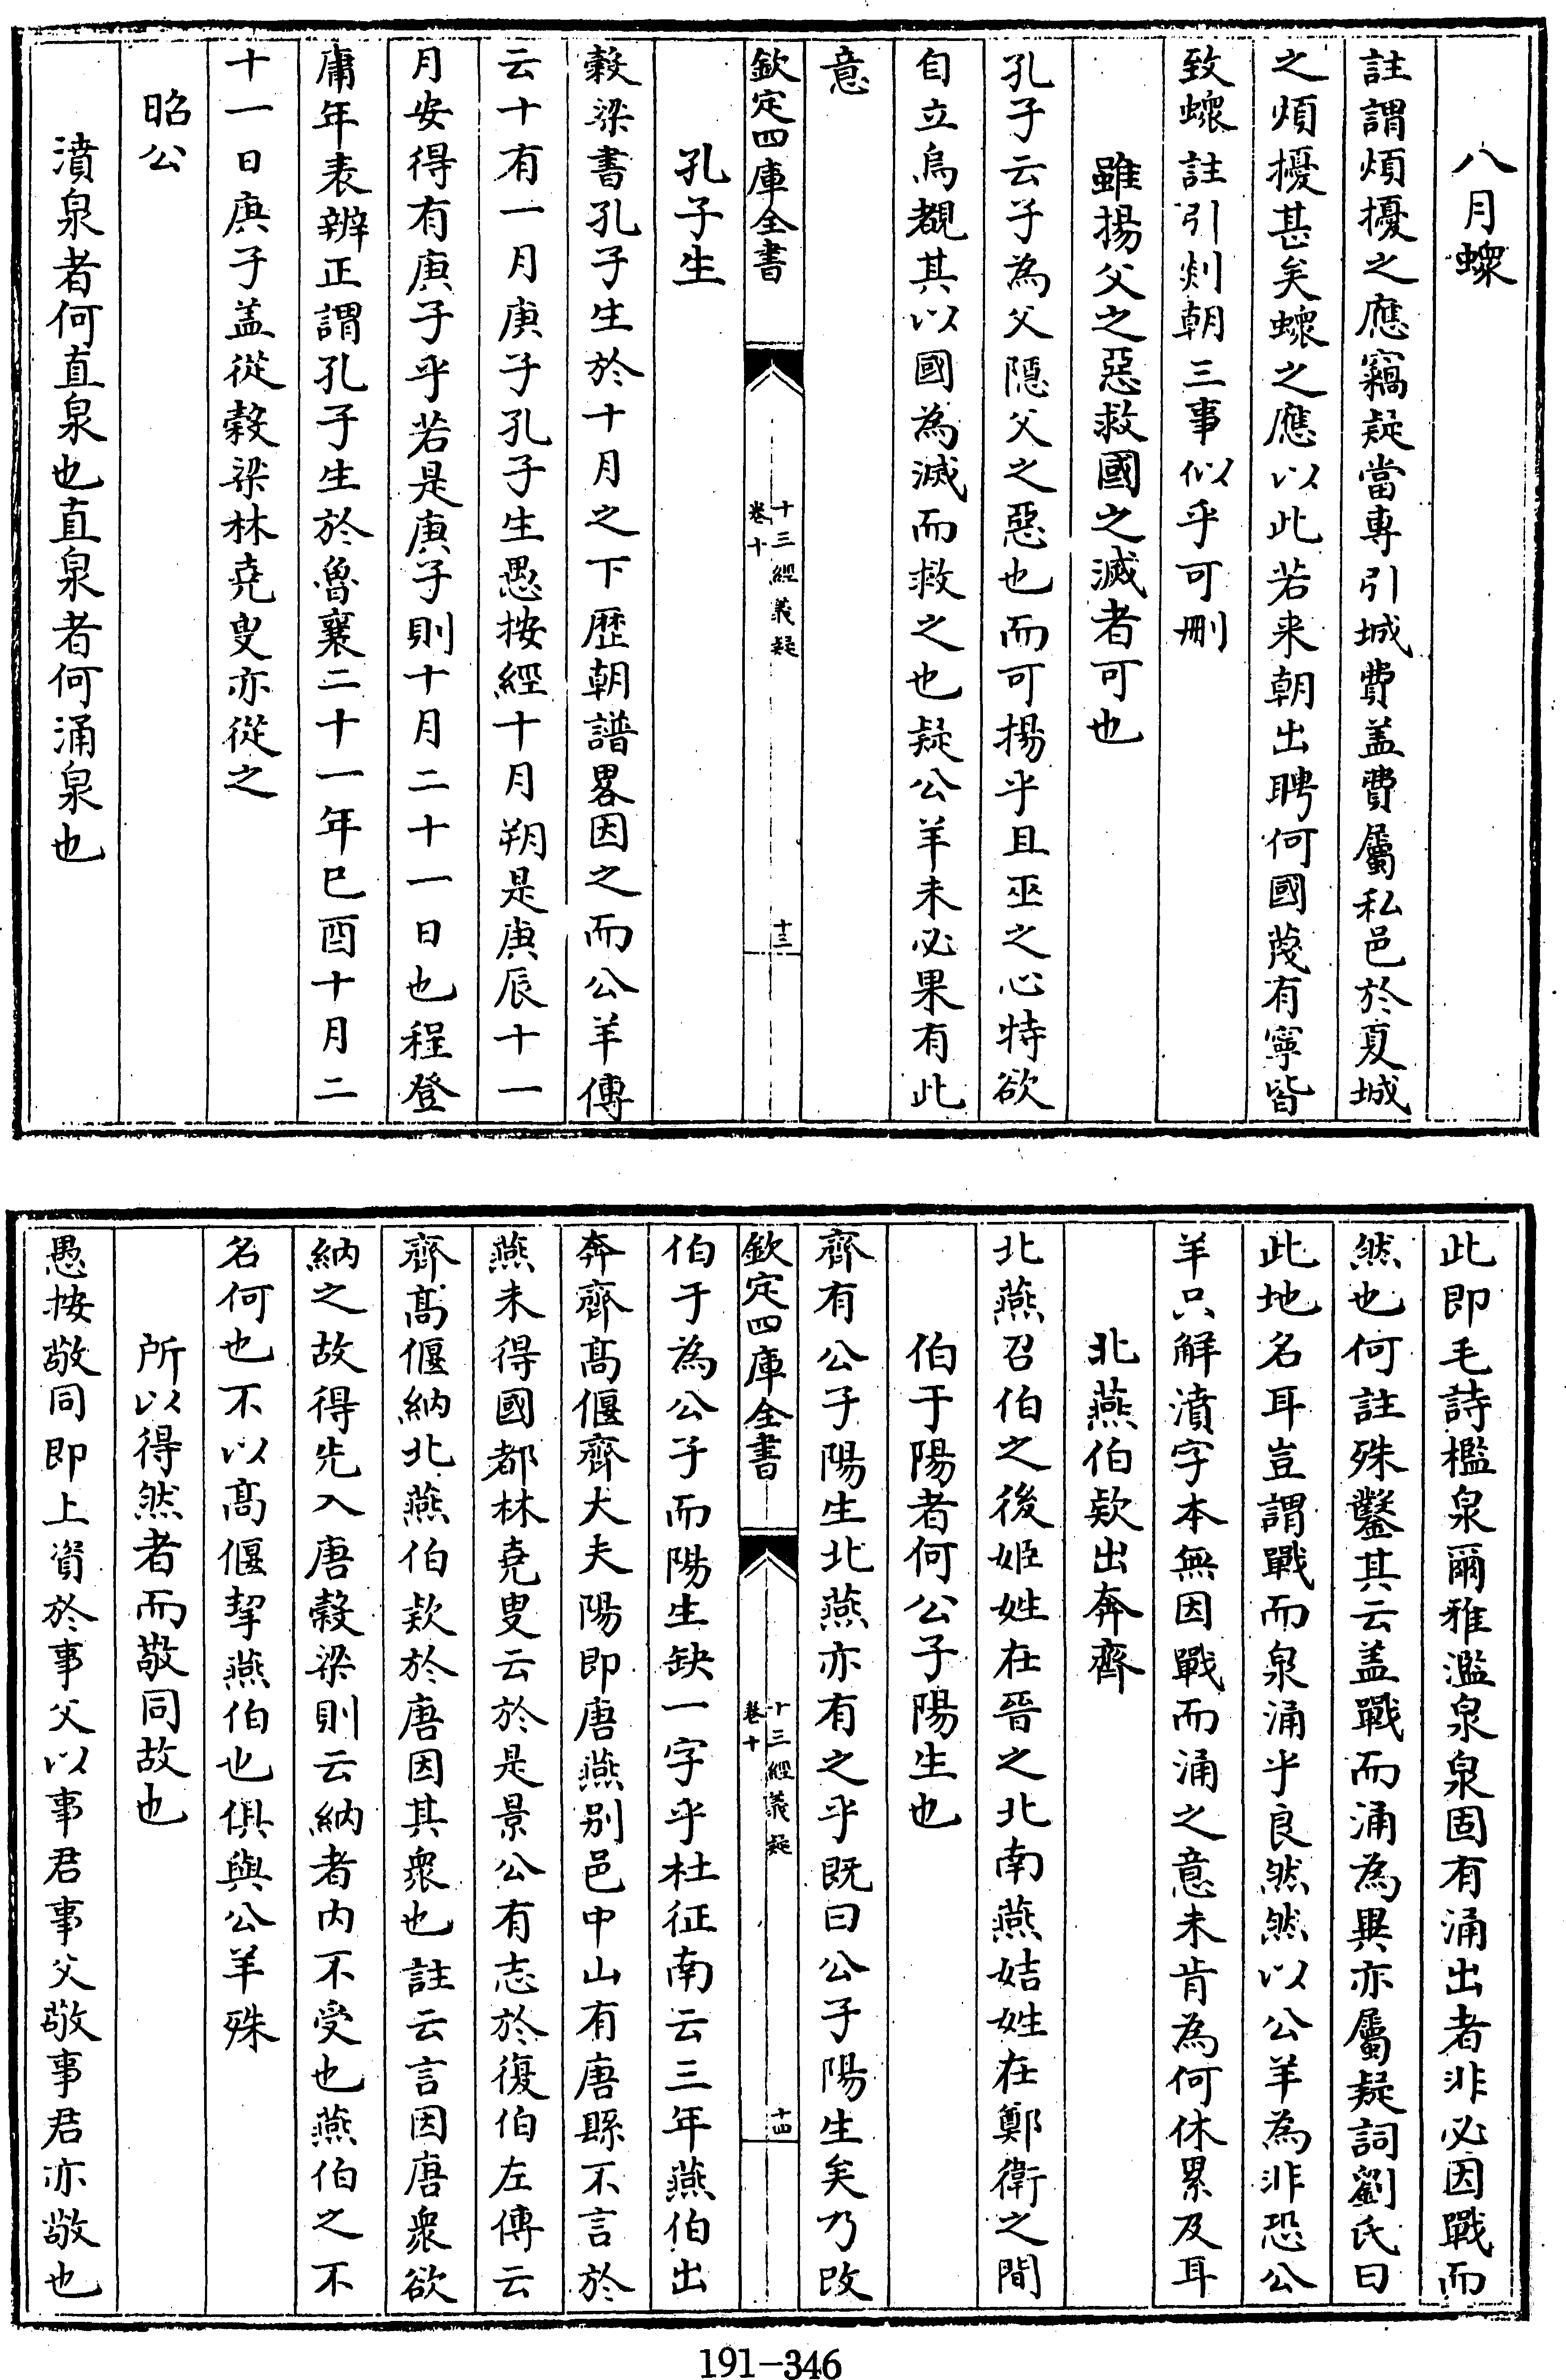 八月螽
註謂煩擾之應竊疑當專引城費盖費屬私邑於夏城
之煩擾甚矣螽之應以此若来朝出聘何國蔑有寧皆
致螽註引剡朝三事似乎可刪
雖揚父之惡救國之滅者可也
孔子云子為父隱父之惡也而可揚乎且巫之心特欲
自立烏覩其以國為滅而救之也疑公羊未必果有此
意
欽定四庫全書
十三經義疑
卷十
十三
孔子生
榖梁書孔子生於十月之下歴朝譜畧因之而公羊傳
云十有一月庚子孔子生愚按經十月朔是庚辰十一
月安得有庚子乎若是庚子則十月二十一日也程登
庸年表辨正謂孔子生於魯襄二十一年巳酉十月二
十一日庚子盖從榖梁林堯叟亦從之
昭公
濆泉者何直泉也直泉者何涌泉也
此即毛詩檻泉爾雅濫泉泉固有涌出者非必因戰而
然也何註殊鑿其云盖戰而涌為異亦屬疑詞劉氏曰
此地名耳豈謂戰而泉涌乎良然然以公羊為非恐公
羊只解濆字本無因戰而涌之意未肯為何休累及耳
北燕伯欵出奔齊
北燕召伯之後姬姓在晉之北南燕姞姓在鄭衛之間
伯于陽者何公子陽生也
齊有公子陽生北燕亦有之乎既曰公子陽生矣乃改
欽定四庫全書
十三經義疑
卷十
十四
伯于為公子而陽生缺一字乎杜征南云三年燕伯出
奔齊髙偃齊大夫陽即唐燕别邑中山有唐縣不言於
燕未得國都林堯叟云於是景公有志於復伯左傳云
齊髙偃納北燕伯欵於唐因其衆也註云言因唐衆欲
納之故得先入唐榖梁則云納者内不受也燕伯之不
名何也不以髙偃挈燕伯也俱與公羊殊
所以得然者而敬同故也
愚按敬同即上資於事父以事君事父敬事君亦敬也
191-346